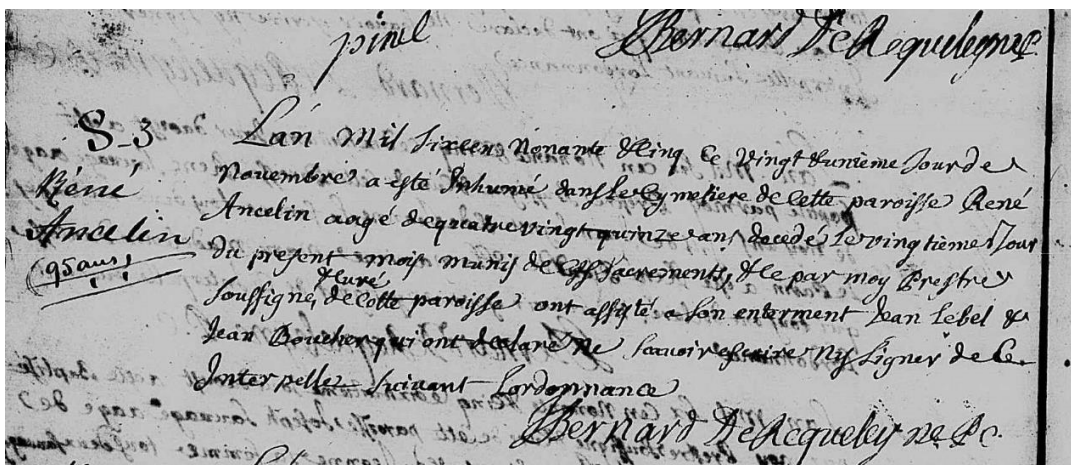 pinel
Bernard De Requeleyne
S-3
Réné
Ancelin
95 ans
Lan mil sixcen nonante & cinq le vingt & unieme Jour de
Novembre a esté Inhumé dans le Cymetiere de cette paroisse René
Ancelin aagé de quatre vingt quinze ans decedé le vingtieme Jour
du present mois munis de Sacrements & le par moy Prestre
& Curé
soussigné de cette paroisse ont assisté a son enterment Jean Lebel &
Jean Boucher qui ont declaré ne scavoir escrire ny signer de Ce
Interpelle suivant Lordonnance
Bernard De Requeleyne